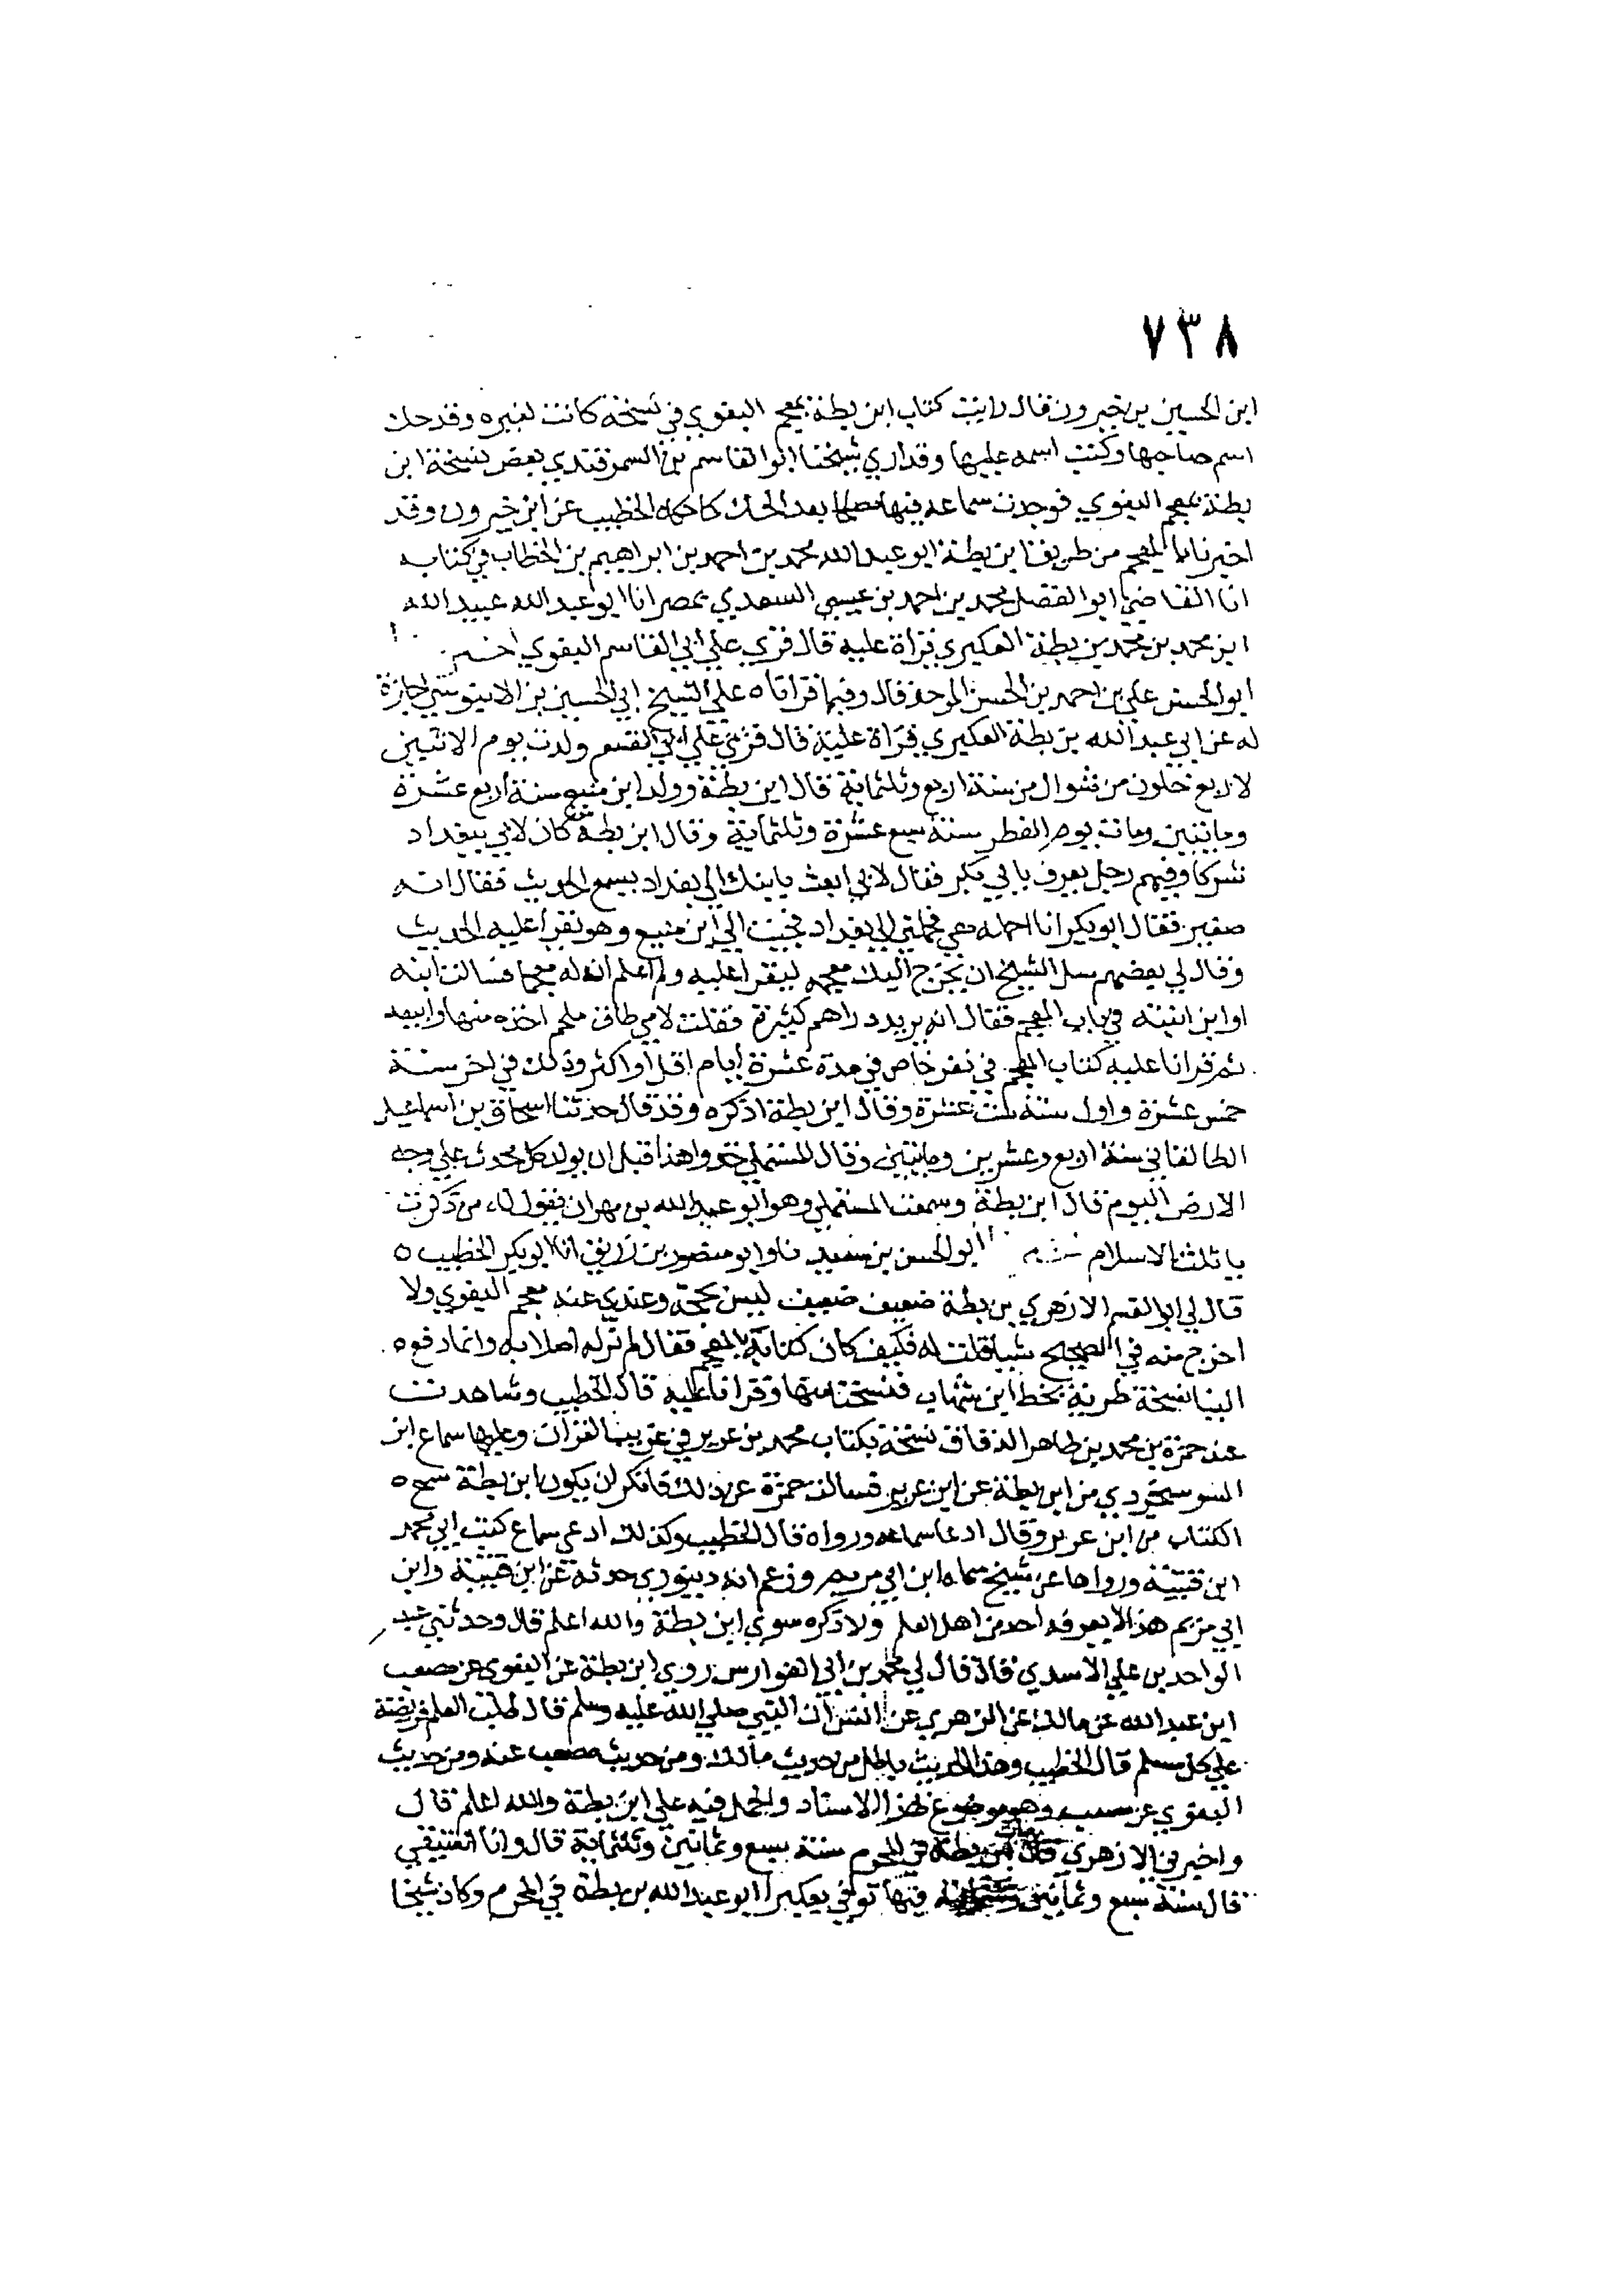 ٧٣٨
ابن الحسين بن خيرون قال رايت كتاب ابن بطة بمعجم البغوي في نسخة كانت لغيره وقد حك
اسم صاحبها وكتب اسمه عليها وقد اري شيخنا ابو القاسم بن السمرقندي بعض نسخة ابن
بطة بمعجم البغوي فوجدت سماعه فيها مصلحا بعد الحك كما حكاه الخطيب عن ابن خيرون وقد
اخبرنا بالمعجم من طريق ابن بطة ابو عبد الله محمد بن احمد بن ابراهيم بن الخطاب في كتابه
انا القاضي ابو الفضل محمد بن احمد بن عيسي السعدي بمصر انا ابو عبد الله عبيد الله
ابن محمد بن محمد بن بطة العكبري قراة عليه قال قري علي ابي القاسم البغوي
ابو الحسن علي بن احمد بن الحسن الموحد قال وفيما قراناه علي الشيخ ابي الحسين بن الابنوسي اجازة
له عن ابي عبد الله بن بطة العكبري قراة علية قال قري علي ابي القسم ولدت يوم الاثنين
لاربع خلون من شوال من سنة اربع وثلثماية قال ابن بطة وولد ابن منيع سنة اربع عشرة
وماتيين ومات يوم الفطر سنة سبع عشرة وثلثماية وقال ابن بطة كان لابي ببغداد
شركا وفيهم رجل يعرف بابي بكر فقال لابي ابعث بابنك الي بغداد يسمع الحديث فقال انه
صغير فقال ابو بكر انا احمله معي فحملني الي بغداد فجيت الي ابن منيع وهو نقرا عليه الحديث
وقال لي بعضهم سل الشيخ ان يخرج اليك معجمه ليقرا عليه ولم اعلم ان له معجما فسالت ابنه
او ابن ابنته في باب المعجم فقال انه يريد دراهم كثيرة فقلت لامي طاق ملحم اخذه منها وابيعه
ثم قرانا عليه كتاب المعجم في نفر خاص في مدة عشرة ايام اقل او اكثر وذلك في اخر سنة
خمس عشرة واول سنة ست عشرة وقال ابن بطة اذكره وقد قال حدثنا اسحاق بن اسماعيل
الطالقاني سنة اربع وعشرين وماتيين وقال المستملي خذوا هذا قبل ان يولد كل محدث علي وجه
الارض اليوم قال ابن بطة وسمعت المستملي وهو ابو عبد الله بن مهران يقول له من ذكرت
يا ثلث الاسلام ابو الحسن بن سعيد نا وابو منصور بن زريق انا ابو بكر الخطيب ه
قال لي ابو القسم الازهري بن بطة ضعيف ضعيف ليس بحجة وعندي عنه معجم البغوي ولا
اخرج منه في الصحيح شيا قلت له فكيف كان كتابه بالمعجم فقال لم نر له اصلا به وانما دفع ه
الينا نسخة طرية بخط ابن شهاب فنسخنا منها وقرانا عليه قال الخطيب وشاهدت
عند حمزة بن محمد بن طاهر الدقاق نسخة بكتاب محمد بن عزير في غريب القران وعليها سماع ابن
السوسنجردي من ابن بطة عن ابن عزير فسالت حمزة عن ذلك فانكر ان يكون ابن بطة سمع ه
الكتاب من ابن عزير وقال ادعا سماعه ورواه قال الخطيب وكذلك ادعي سماع كتب ابي محمد
ابن قتيبة ورواها عن شيخ سماه ابن ابي مريم وزعم انه دينوري حدثه عن ابن قتيبة وابن
ابي مريم هذا لا يعرفه احد من اهل العلم ولا ذكره سوي ابن بطة والله اعلم قال وحدثني عبد
الواحد بن علي الاسدي قال قال لي محمد بن ابي الفوارس روي ابن بطة عن البغوي عن مصعب
ابن عبد الله عن مالك عن الزهري عن انس ان النبي صلي الله عليه وسلم قال طلب العلم فريضة
علي كل مسلم قال الخطيب وهذا الحديث باطل من حديث مالك ومن حديث مصعب عنه ومن حديث
البغوي عن مصعب وهو موضوع بهذا الاسناد والحمل فيه علي ابن بطة والله اعلم قال
واخبرني الازهري قال مات ابن بطة في المحرم سنة سبع وثمانين وثلثماية قال وانا العتيقي
قال سنة سبع وثمانين وثلثماية فيها توفي بعكبرا ابو عبد الله بن بطة في المحرم وكان شيخا